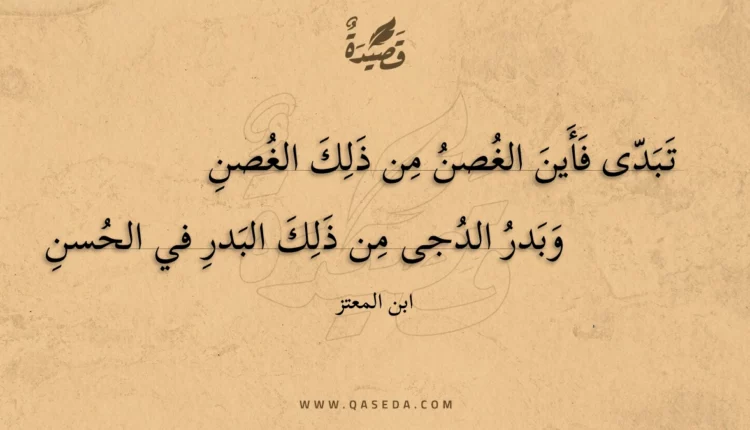 قَصِيدَةٌ
تَبَدّى فَأَينَ الغُصنُ مِن ذَلِكَ الغُصنِ
وَبَدرُ الدُجى مِن ذَلِكَ البَدرِ في الحُسنِ
ابن المعتز
WWW.QASEDA.COM